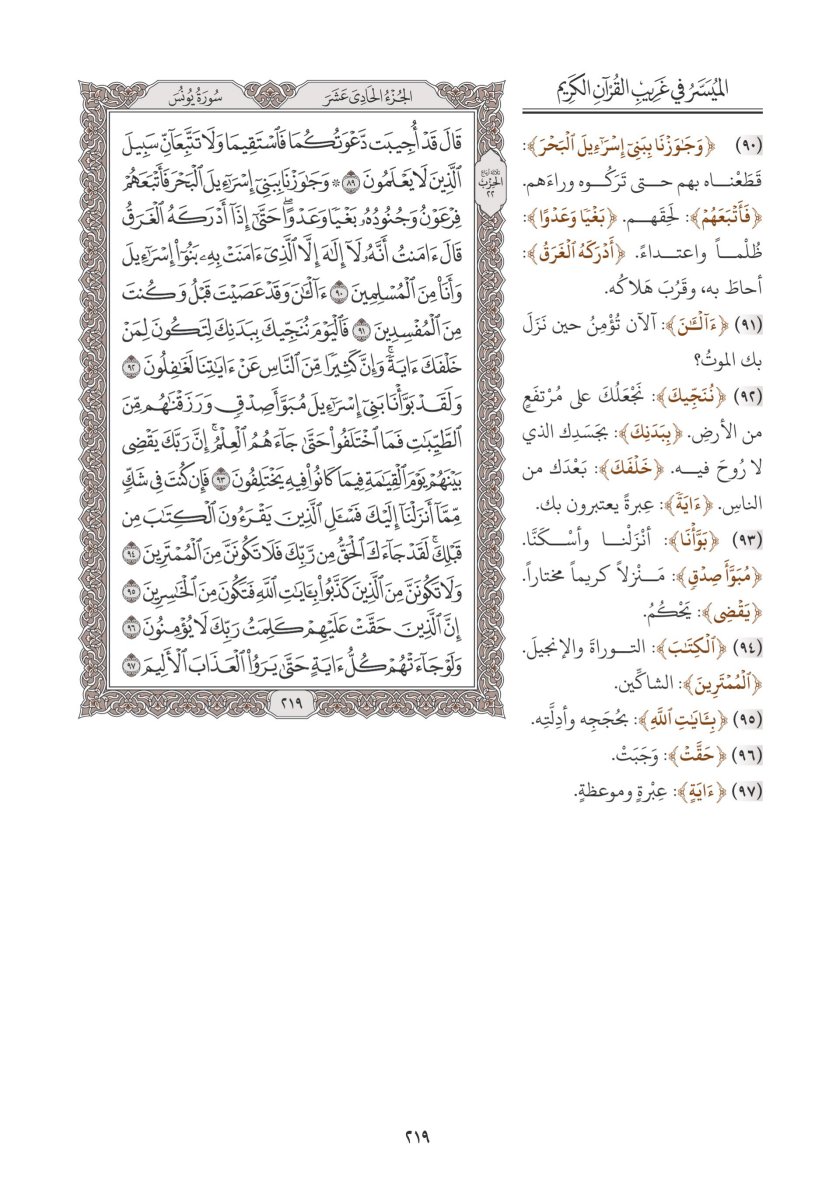 الميُسَّرُ في غَرِيبِ القُرْآنِ الكَرِيمِ
(٩٠) ﴿وَجَٰوَزۡنَا بِبَنِيٓ إِسۡرَٰٓءِيلَ ٱلۡبَحۡرَ﴾:
قَطَعْنـاه بهم حتـى تَرَكُـوه وراءَهم.
﴿فَأَتۡبَعَهُمۡ﴾: لَحِقَهـم. ﴿بَغۡيٗا وَعَدۡوًا﴾:
ظُلْمـاً واعتـداءً. ﴿أَدۡرَكَهُ ٱلۡغَرَقُ﴾:
أحاطَ به، وقَرُبَ هَلاكُه.
(٩١) ﴿ءَآلۡـَٰٔنَ﴾: آلآن تُؤْمِنُ حين نَزَل
بك الموتُ؟
(٩٢) ﴿نُنَجِّيكَ﴾: نَجْعَلُكَ على مُرْتفَعٍ
من الأرضِ. ﴿بِبَدَنِكَ﴾: بجَسَدِك الذي
لا رُوحَ فيـه. ﴿خَلۡفَكَ﴾: بَعْدَك من
الناسِ. ﴿ءَايَةٗ﴾: عِبرةً يعتبرون بك.
(٩٣) ﴿بَوَّأۡنَا﴾: أنْزَلْنـا وأسْـكَنَّا.
﴿مُبَوَّأَ صِدۡقٖ﴾: مَـنْزلاً كريمـاً مختاراً.
﴿يَقۡضِي﴾: يَحْكُمُ.
(٩٤) ﴿ٱلۡكِتَٰبَ﴾: التـوراةَ والإنجيلَ.
﴿ٱلۡمُمۡتَرِينَ﴾: الشاكِّين.
(٩٥) ﴿بِـَٔايَٰتِ ٱللَّهِ﴾: بحُجَجِه وأدِلَّتِه.
(٩٦) ﴿حَقَّتۡ﴾: وَجَبَتْ.
(٩٧) ﴿ءَايَةٍ﴾: عِبْرةٍ وموعظةٍ.
الجُزْءُ الحَادِي عَشَرَ
سُورَةُ يُونُسَ
قَالَ قَدۡ أُجِيبَت دَّعۡوَتُكُمَا فَٱسۡتَقِيمَا وَلَا تَتَّبِعَآنِّ سَبِيلَ
ٱلَّذِينَ لَا يَعۡلَمُونَ ٨٩ ۞ وَجَٰوَزۡنَا بِبَنِيٓ إِسۡرَٰٓءِيلَ ٱلۡبَحۡرَ فَأَتۡبَعَهُمۡ
فِرۡعَوۡنُ وَجُنُودُهُۥ بَغۡيٗا وَعَدۡوًاۖ حَتَّىٰٓ إِذَآ أَدۡرَكَهُ ٱلۡغَرَقُ
قَالَ ءَامَنتُ أَنَّهُۥ لَآ إِلَٰهَ إِلَّا ٱلَّذِيٓ ءَامَنَتۡ بِهِۦ بَنُوٓاْ إِسۡرَٰٓءِيلَ
وَأَنَا۠ مِنَ ٱلۡمُسۡلِمِينَ ٩٠ ءَآلۡـَٰٔنَ وَقَدۡ عَصَيۡتَ قَبۡلُ وَكُنتَ
مِنَ ٱلۡمُفۡسِدِينَ ٩١ فَٱلۡيَوۡمَ نُنَجِّيكَ بِبَدَنِكَ لِتَكُونَ لِمَنۡ
خَلۡفَكَ ءَايَةٗۚ وَإِنَّ كَثِيرٗا مِّنَ ٱلنَّاسِ عَنۡ ءَايَٰتِنَا لَغَٰفِلُونَ ٩٢
وَلَقَدۡ بَوَّأۡنَا بَنِيٓ إِسۡرَٰٓءِيلَ مُبَوَّأَ صِدۡقٖ وَرَزَقۡنَٰهُم مِّنَ
ٱلطَّيِّبَٰتِ فَمَا ٱخۡتَلَفُواْ حَتَّىٰ جَآءَهُمُ ٱلۡعِلۡمُۚ إِنَّ رَبَّكَ يَقۡضِي
بَيۡنَهُمۡ يَوۡمَ ٱلۡقِيَٰمَةِ فِيمَا كَانُواْ فِيهِ يَخۡتَلِفُونَ ٩٣ فَإِن كُنتَ فِي شَكّٖ
مِّمَّآ أَنزَلۡنَآ إِلَيۡكَ فَسۡـَٔلِ ٱلَّذِينَ يَقۡرَءُونَ ٱلۡكِتَٰبَ مِن
قَبۡلِكَۚ لَقَدۡ جَآءَكَ ٱلۡحَقُّ مِن رَّبِّكَ فَلَا تَكُونَنَّ مِنَ ٱلۡمُمۡتَرِينَ ٩٤
وَلَا تَكُونَنَّ مِنَ ٱلَّذِينَ كَذَّبُواْ بِـَٔايَٰتِ ٱللَّهِ فَتَكُونَ مِنَ ٱلۡخَٰسِرِينَ ٩٥
إِنَّ ٱلَّذِينَ حَقَّتۡ عَلَيۡهِمۡ كَلِمَتُ رَبِّكَ لَا يُؤۡمِنُونَ ٩٦
وَلَوۡ جَآءَتۡهُمۡ كُلُّ ءَايَةٍ حَتَّىٰ يَرَوُاْ ٱلۡعَذَابَ ٱلۡأَلِيمَ ٩٧
ثلاثة أرباع
الحِزْبُ
٢٢
٢١٩
٢١٩